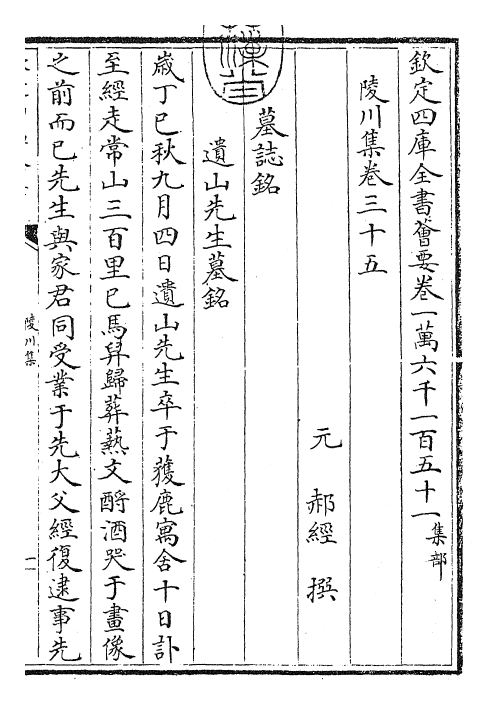 欽定四庫全書薈要卷一萬六千一百五十一集部
陵川集卷三十五
元 郝經 撰
墓誌銘
遺山先生墓銘
歳丁巳秋九月四日遺山先生卒于䕶鹿寓舍十日訃
至經走常山三百里巳馬舁歸葬爇文酹酒哭于畫像
之前而已先生與家君同受業于先大父經復逮事先
陵川集
一